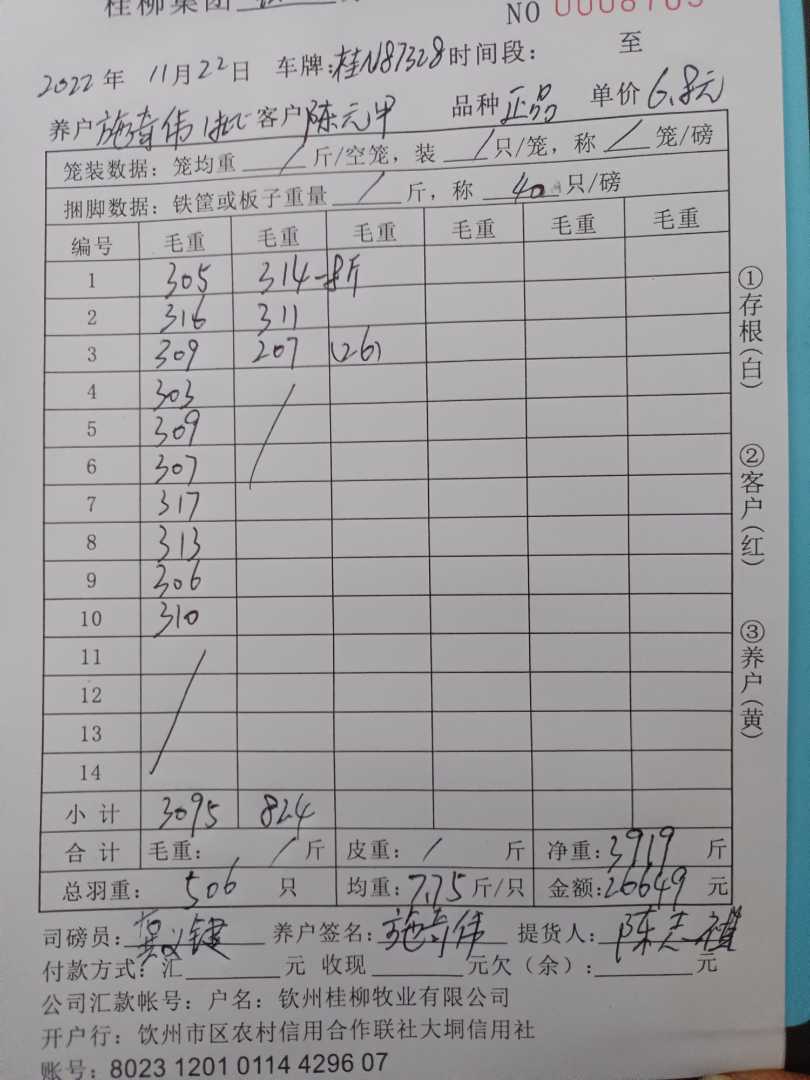 桂柳集团
NO 0008705
2022年 11月22日 车牌:桂N87328时间段: 至
养户施奇伟 客户陈元甲 品种正品 单价6.8元
笼装数据: 笼均重 / 斤/空笼, 装 / 只/笼, 称 / 笼/磅
捆脚数据: 铁筐或板子重量 / 斤, 称 40 只/磅
编号 毛重 毛重 毛重 毛重 毛重 毛重
1 305 314-8斤
2 316 311
3 309 207 (26)
4 303
5 309
6 307
7 317
8 313
9 306
10 310
11
12
13
14
小 计 3095 824
合 计 毛重: / 斤 皮重: / 斤 净重:3919 斤
总羽重: 506 只 均重:7.75斤/只 金额:26649 元
司磅员: 莫义键 养户签名: 施奇伟 提货人: 陈志祺
付款方式: 汇 元 收现 元欠(余): 元
公司汇款帐号: 户名: 钦州桂柳牧业有限公司
开户行: 钦州市区农村信用合作联社大垌信用社
账号: 8023 1201 0114 4296 07
①存根(白)
②客户(红)
③养户(黄)